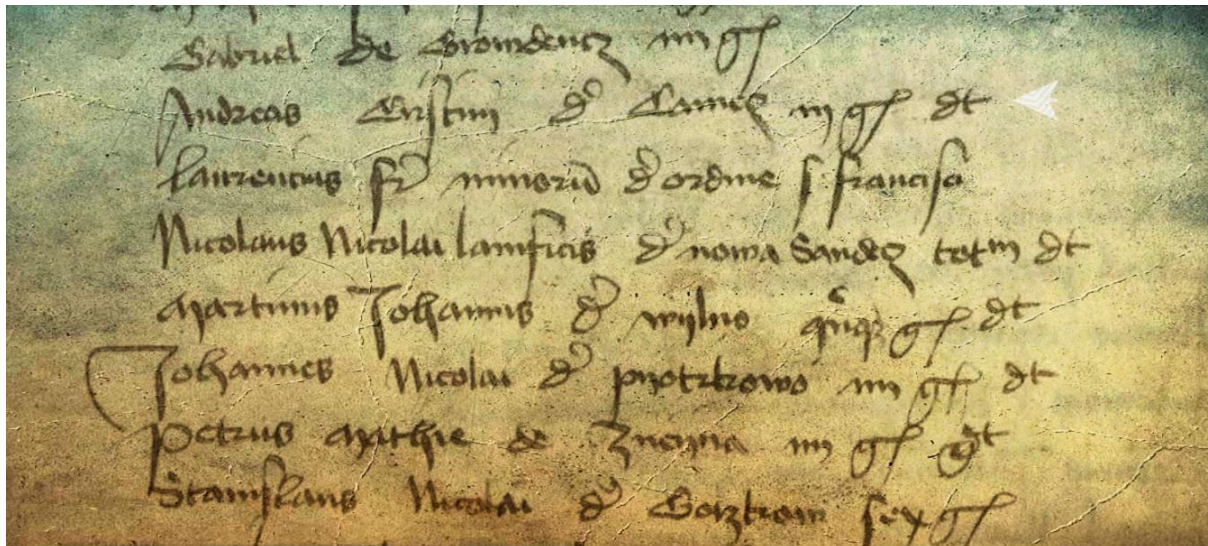 Gabriel de Growdencz iiii gr
Andreas Cristini de Camen iii gr dt
Laurencius fr minorum d ordine s francisci
Nicolaus Nicolai lanificis d nowa Sandecz totm dt
Martinus Johannis d wylno gr dt
Johannes Nicolai d pyotrkowo iiii gr dt
Petrus Mathie de Zneyna iiii gr dt
Stanislaus Nicolai d sex gr